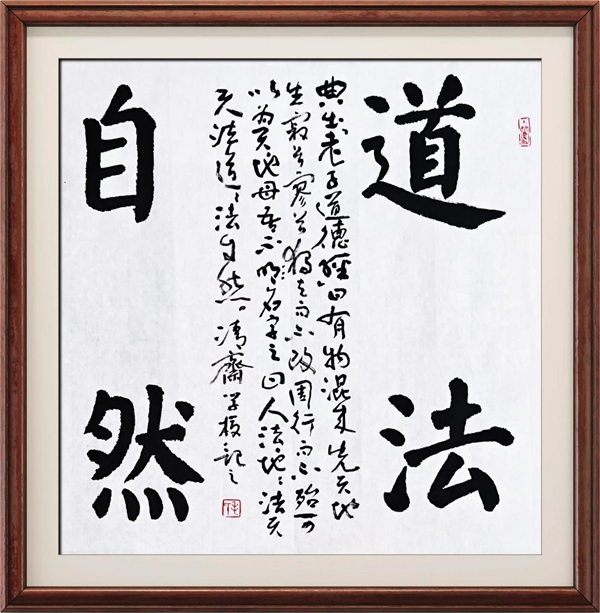 道法
典出老子道德經曰有物混成先天地
生寂兮寥兮獨立而不改周行而不殆可
以为天地母吾不知名字之曰人法地〻法天
天法道〻法自然清齋学記之
自然